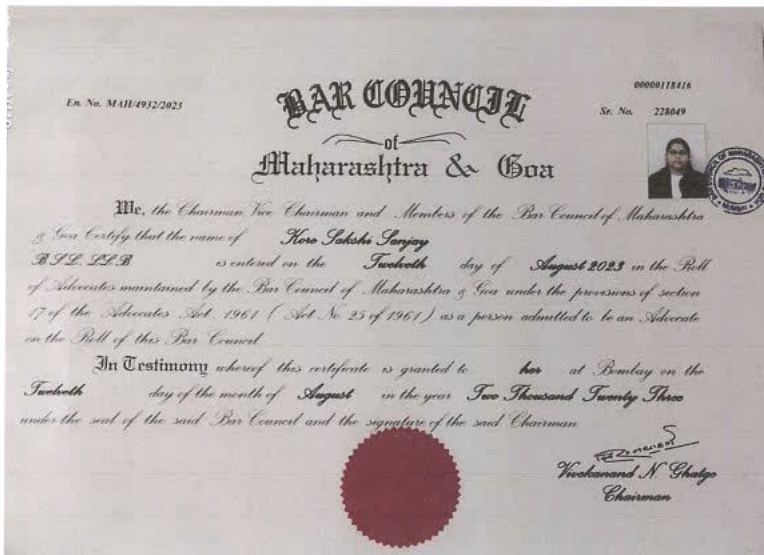 00000118416
En. No. MAH/4932/2023
Sr. No. 228049
BAR COUNCIL
of
Maharashtra & Goa
We, the Chairman, Vice Chairman and Members of the Bar Council of Maharashtra
& Goa Certify that the name of Kore Sakshi Sanjay
B.S.L. LL.B is entered on the Twelveth day of August 2023 in the Roll
of Advocates maintained by the Bar Council of Maharashtra & Goa under the provisions of section
17 of the Advocates Act, 1961 ( Act No. 25 of 1961 ) as a person admitted to be an Advocate
on the Roll of this Bar Council.
In Testimony whereof this certificate is granted to her at Bombay on the
Twelveth day of the month of August in the year Two Thousand Twenty Three
under the seal of the said Bar Council and the signature of the said Chairman.
Vivekanand N. Ghatge
Chairman